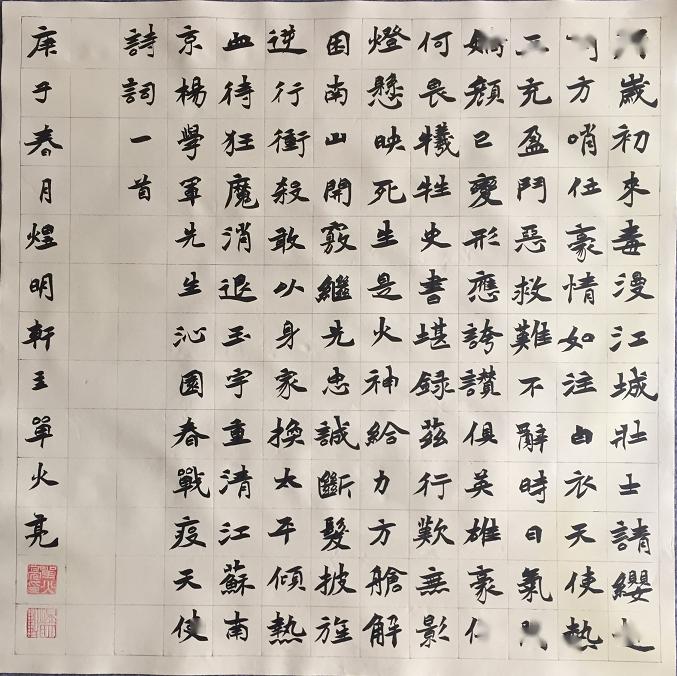 歲初來毒漫江城壯士請纓
方哨任豪情如注白衣天使熱
充盈鬥惡救難不辭時日氣
顏已變形應誇讚俱英雄豪
何畏犧牲史書堪錄茲行歎無影
燈懸映死生是火神給力方艙解
困南山開竅繼先忠誠斷髮披旌
逆行衝殺敢以身家換太平傾熱
血待狂魔消退玉宇重清江蘇南
京楊學軍先生沁園春戰疫天使
詩詞一首
庚子春月煌明軒主單火亮